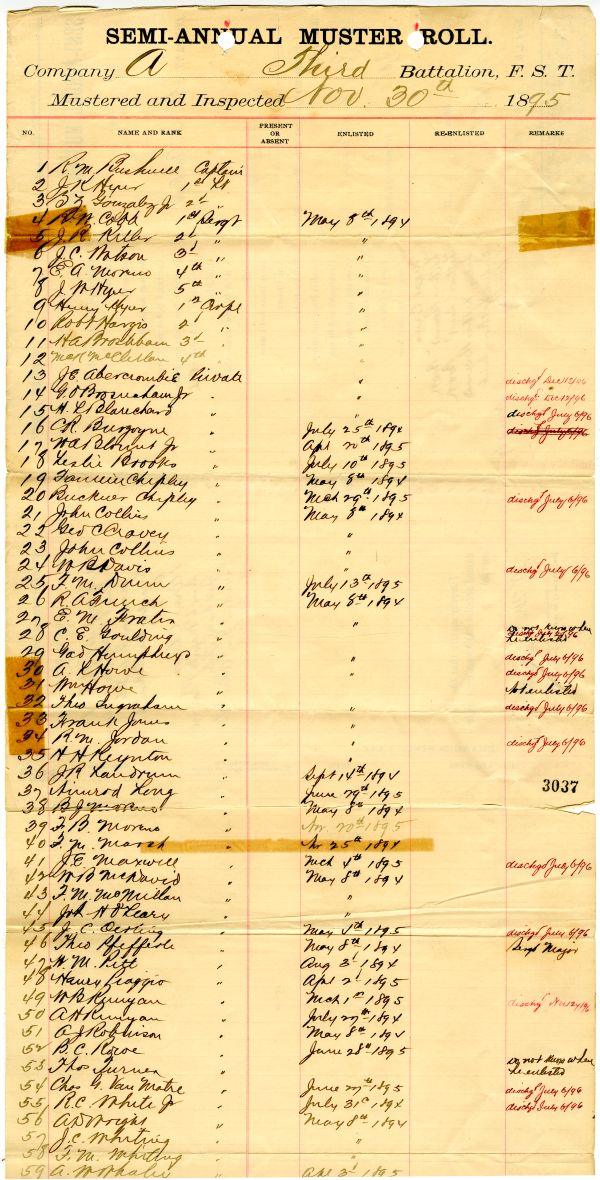 SEMI-ANNUAL MUSTER ROLL.
Company A Third Battalion, F. S. T.
Mustered and Inspected Nov. 30th 1895
NO. NAME AND RANK PRESENT OR ABSENT ENLISTED RE-ENLISTED REMARKS
1 R. M. Bushnell Captain
2 J. K. Hyer 1st Lt
3 Gonzalez Jr 2d "
4 Cobb 1st Sergt May 8th 1894
5 J. R. Keller 2d " "
6 J. C. Watson 3d " "
7 E. A. Moreno 4th " "
8 J. W. Hyer 5th " "
9 Henry Hyer 1st Corpl "
10 Robt Hargis 2d " "
11 H A Brosnaham 3d " "
12 McClellan 4th " "
13 J. E. Abercrombie Private " dischgd Dec 12/96
14 G. O Brosnaham Jr " " dischgd Dec 12/96
15 H. L. Blanchard " " dischgd July 6/96
16 C. R. Burgoyne " July 25th 1894 dischgd July 6/96
17 W A Blount Jr " Apr 20th 1895
18 Leslie Brooks " July 10th 1895
19 Fannin Chipley " May 8th 1894
20 Buckner Chipley " Mch 29th 1895 dischgd July 6/96
21 John Collins " May 8th 1894
22 Geo C Cravey " "
23 John Collins " "
24 W. B. Davis " " dischgd July 6/96
25 F. M. Dunn " July 13th 1895
26 R. A. French " May 8th 1894
27 E. M. " "
28 C. E. Goulding " " Do not know when he enlisted
29 Gad Humphreys " " dischgd July 6/96
30 A. K Howe " " dischgd July 6/96
31 Wm Howe " " Not enlisted
32 Theo Ingraham " " dischgd July 6/96
33 Frank Jones " "
34 R. M. Jordan " " dischgd July 6/96
35 H H Keynton " "
36 J. R. Landrum " Sept 14th 1894
37 Nimrod Long " June 29th 1895 3037
38 B. J. Moreno " May 8th 1894
39 F. B. Moreno " Nov. 20th 1895
40 F. M. Marsh " 25th 1894
41 J. E. Maxwell " Mch 4th 1895 dischgd July 6/96
42 W. B McDavid " May 8th 1894
43 F. M. McMillan " "
44 Jno H O'Leary " "
45 J. C. Oerting " May 4th 1895 dischgd July 6/96
46 Theo Pfeiffer " May 8th 1894 Sergt Major
47 H. M. Pitt " Aug 3d 1894
48 Henry " Apr 2d 1895
49 W B Runyan " Mch 1st 1895 dischgd Nov 24/96
50 A H Runyan " July 27th 1894
51 A. J. Robinson " May 8th 1894
52 B. C. " June 28th 1895
53 Thos Turner " Do not know when he enlisted
54 Chas G. Van Matre " June 27th 1895 dischgd July 6/96
55 R. C. White Jr " July 31st 1894 dischgd July 6/96
56 A D Wright " May 8th 1894
57 J. C. Whiting " "
58 F. M. Whiting " "
59 A. W Whaley " Apr 3d 1895